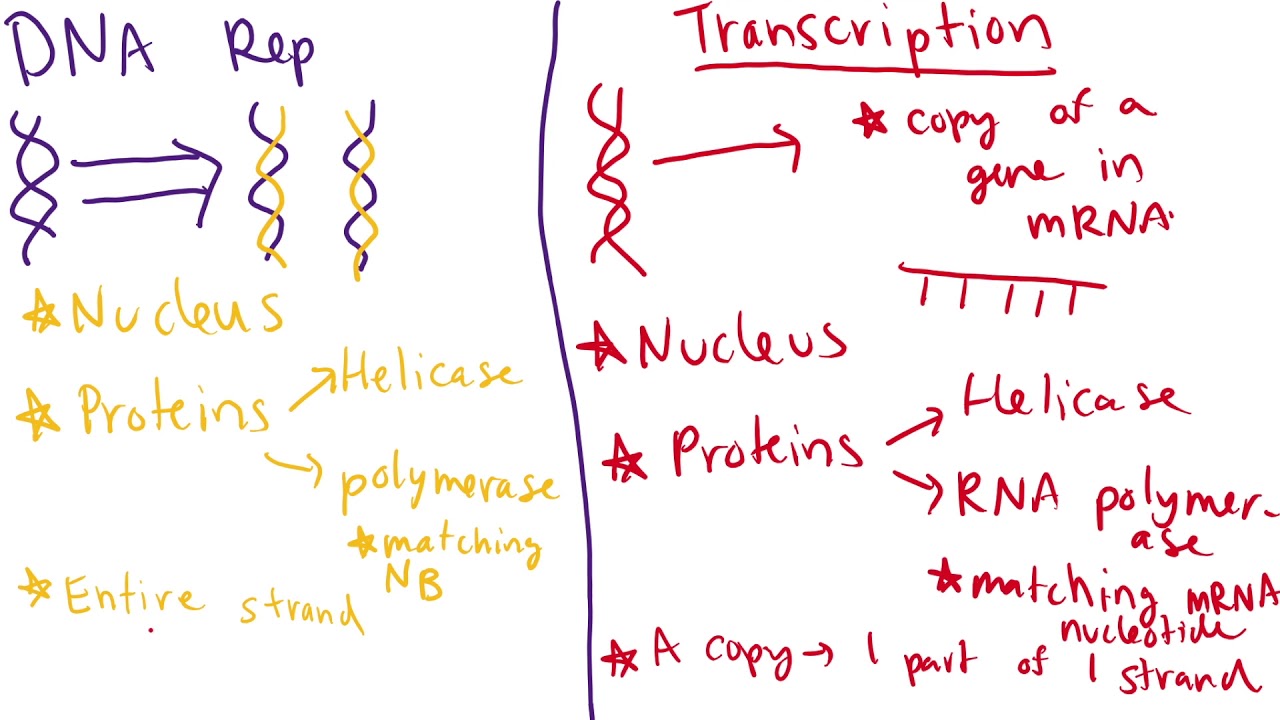 DNA Rep
Nucleus
Proteins
Helicase
polymerase
matching
NB
Entire strand
Transcription
copy of a
gene in
mRNA.
Nucleus
Proteins
Helicase
RNA polymer-
ase
matching mRNA
nucleotide
A copy → 1 part of 1 strand